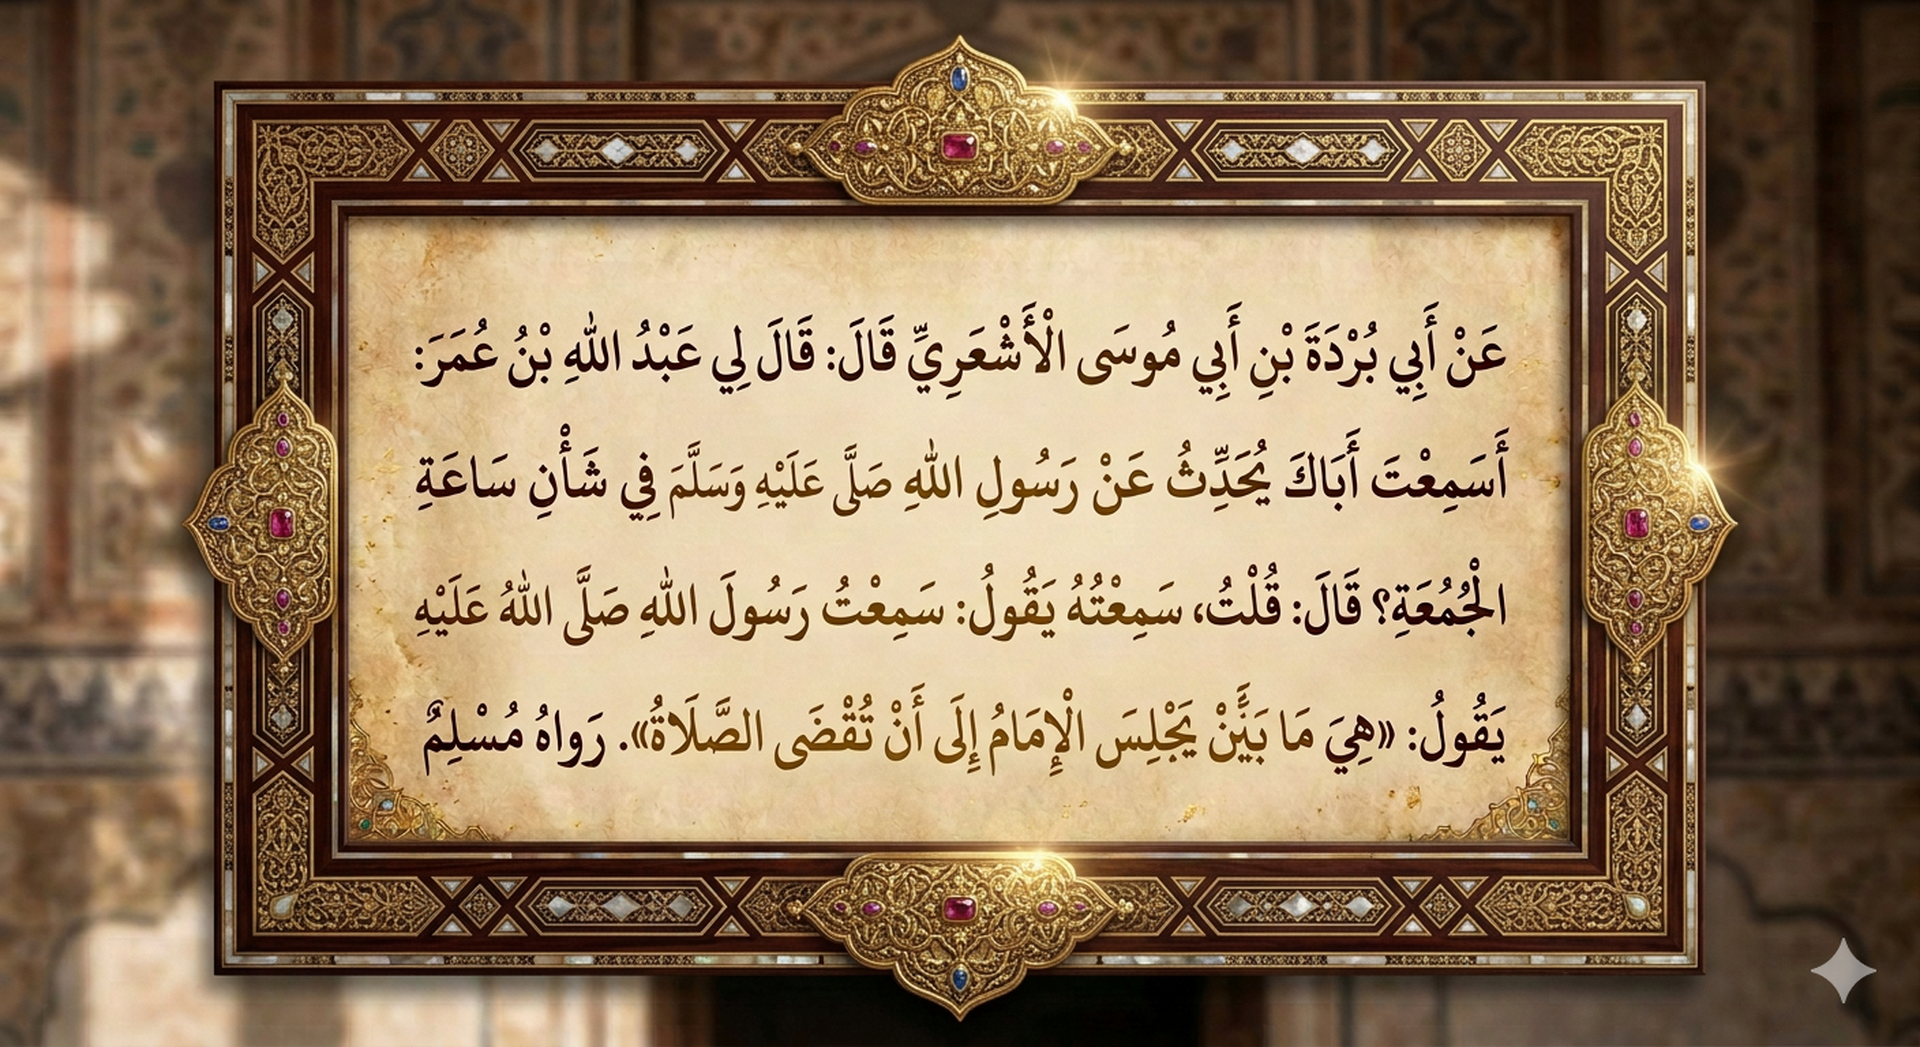 عَنْ أَبِي بُرْدَةَ بْنِ أَبِي مُوسَى الْأَشْعَرِيِّ قَالَ: قَالَ لِي عَبْدُ اللهِ بْنُ عُمَرَ:
أَسَمِعْتَ أَبَاكَ يُحَدِّثُ عَنْ رَسُولِ اللهِ صَلَّى عَلَيْهِ وَسَلَّمَ فِي شَأْنِ سَاعَةِ
الْجُمُعَةِ؟ قَالَ: قُلْتُ، سَمِعْتُهُ يَقُولُ: سَمِعْتُ رَسُولَ اللهِ صَلَّى اللهُ عَلَيْهِ
يَقُولُ: «هِيَ مَا يَجْلِسَ الْإِمَامُ إِلَى أَنْ تُقْضَى الصَّلَاةُ». رَواهُ مُسْلِمٌ